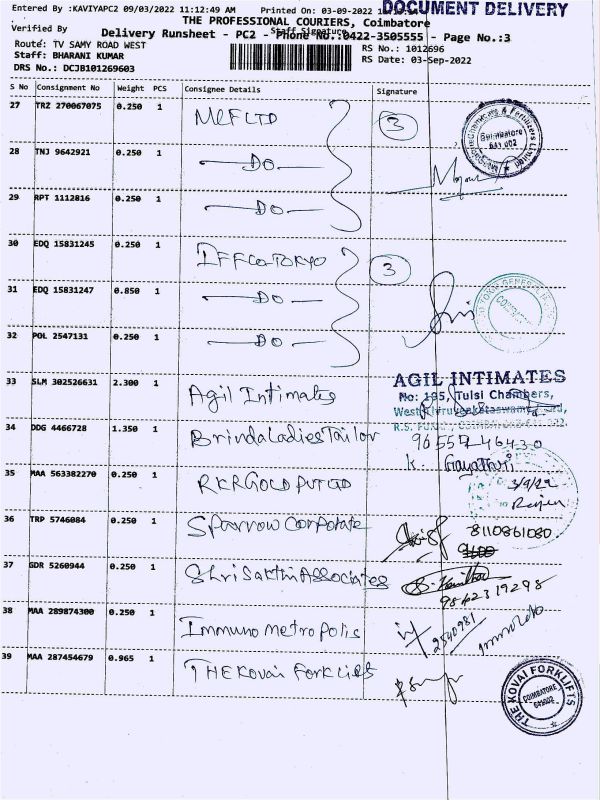 Entered By :KAVIYAPC2 09/03/2022 11:12:49 AM Printed On: 03-09-2022 DOCUMENT DELIVERY
THE PROFESSIONAL COURIERS, Coimbatore
Verified By Staff Signature
Delivery Runsheet - PC2 - Phone No.:0422-3505555 - Page No.:3
Route: TV SAMY ROAD WEST RS No.: 1012696
Staff: BHARANI KUMAR RS Date: 03-Sep-2022
DRS No.: DCJB101269603
S No Consignment No Weight PCS Consignee Details Signature
27 TRZ 270067075 0.250 1 MCF LTD 3
28 TNJ 9642921 0.250 1 DO
Coimbatore 641 002
29 RPT 1112816 0.250 1 DO
30 EDQ 15831245 0.250 1 IFFCO-TOKYO 3
31 EDQ 15831247 0.850 1 DO
32 POL 2547131 0.250 1 DO
33 SLM 302526631 2.300 1 Agil Intimates
AGIL INTIMATES
No: 195, Tulsi Chambers,
34 DDG 4466728 1.350 1 Brinda Ladies Tailor 96557 46430
K. Gayathri
35 MAA 563382270 0.250 1 RKR GOLD PVT LTD 3/9/22
36 TRP 5746084 0.250 1 Sparrow Corporate 8110861080
37 GDR 5260944 0.250 1 Shri Sakthi Associates
9842319298
38 MAA 289874300 0.250 1 Immuno Metropolis 2540981
39 MAA 287454679 0.965 1 THE Kovai Forklifts
THE KOVAI FORKLIFTS
COIMBATORE
641002